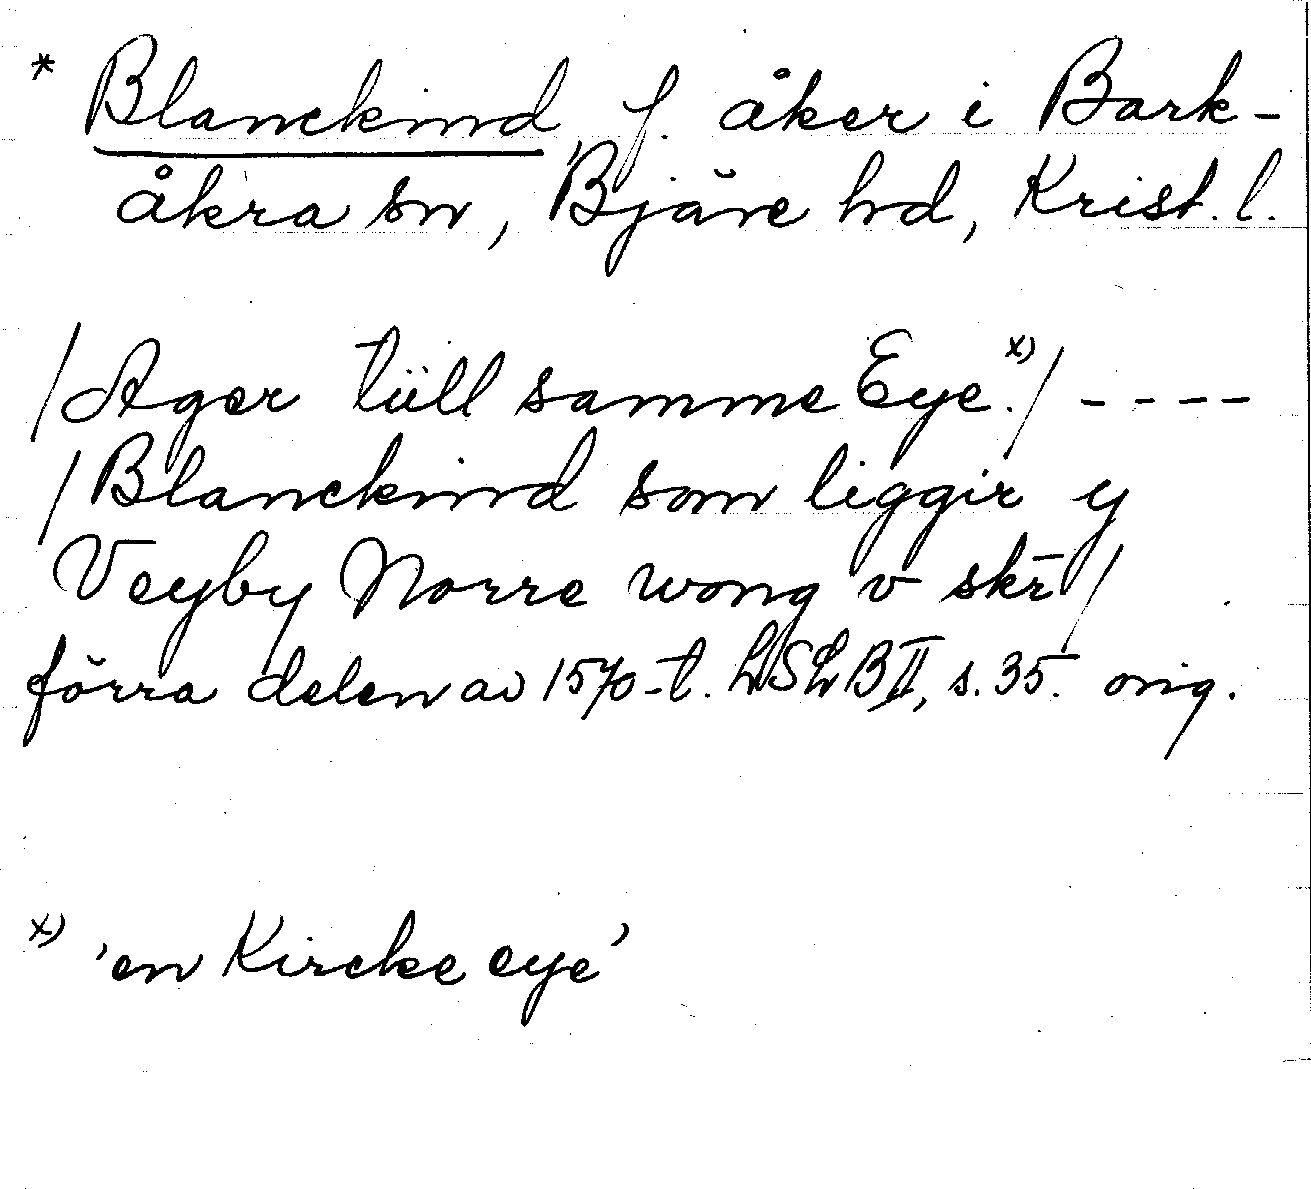 * Blanckind, f. åker i Bark-
åkra sn, Bjäre hd, Krist. l.
/Ager tüll samme Eye.x)/ ----
/Blanckind som liggir y
Veyby Norre wong v skr̄/
förra delen av 1570-t. LSLB II, s. 35. orig.
x) 'en Kircke eye'